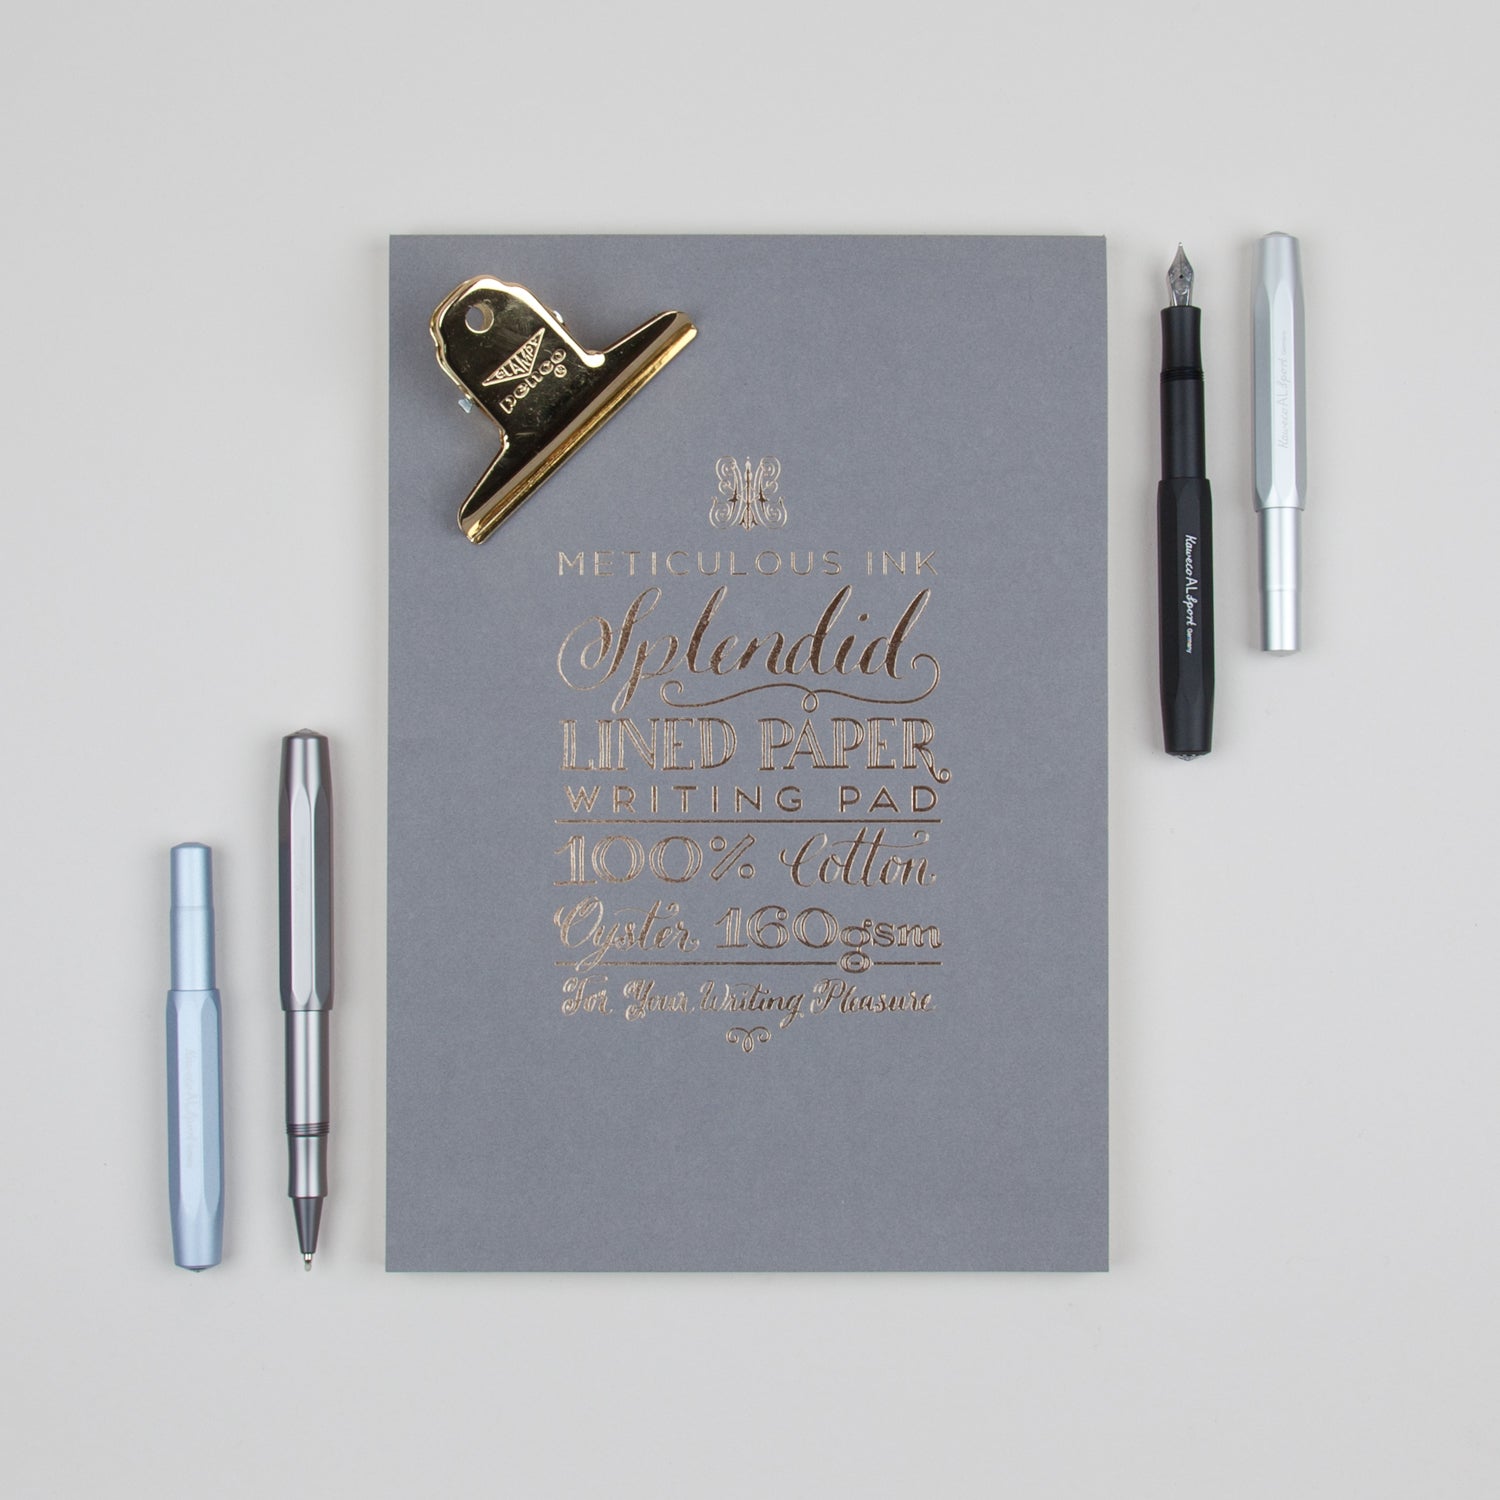 CLAMPY
penco®
METICULOUS INK
Splendid
LINED PAPER
WRITING PAD
100% Cotton
Oyster 160gsm
For Your Writing Pleasure
Kaweco AL Sport Germany
Kaweco AL Sport Germany